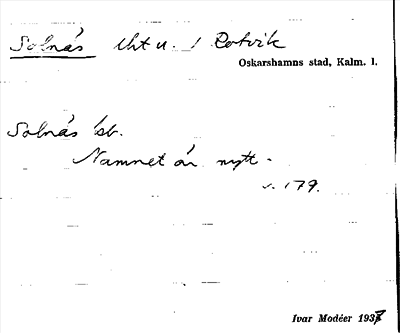 Solnäs lht u. 1 Rotvik
Oskarshamns stad, Kalm. l.
Solnäs sb.
Namnet är nytt.
s. 179.
Ivar Modéer 1937